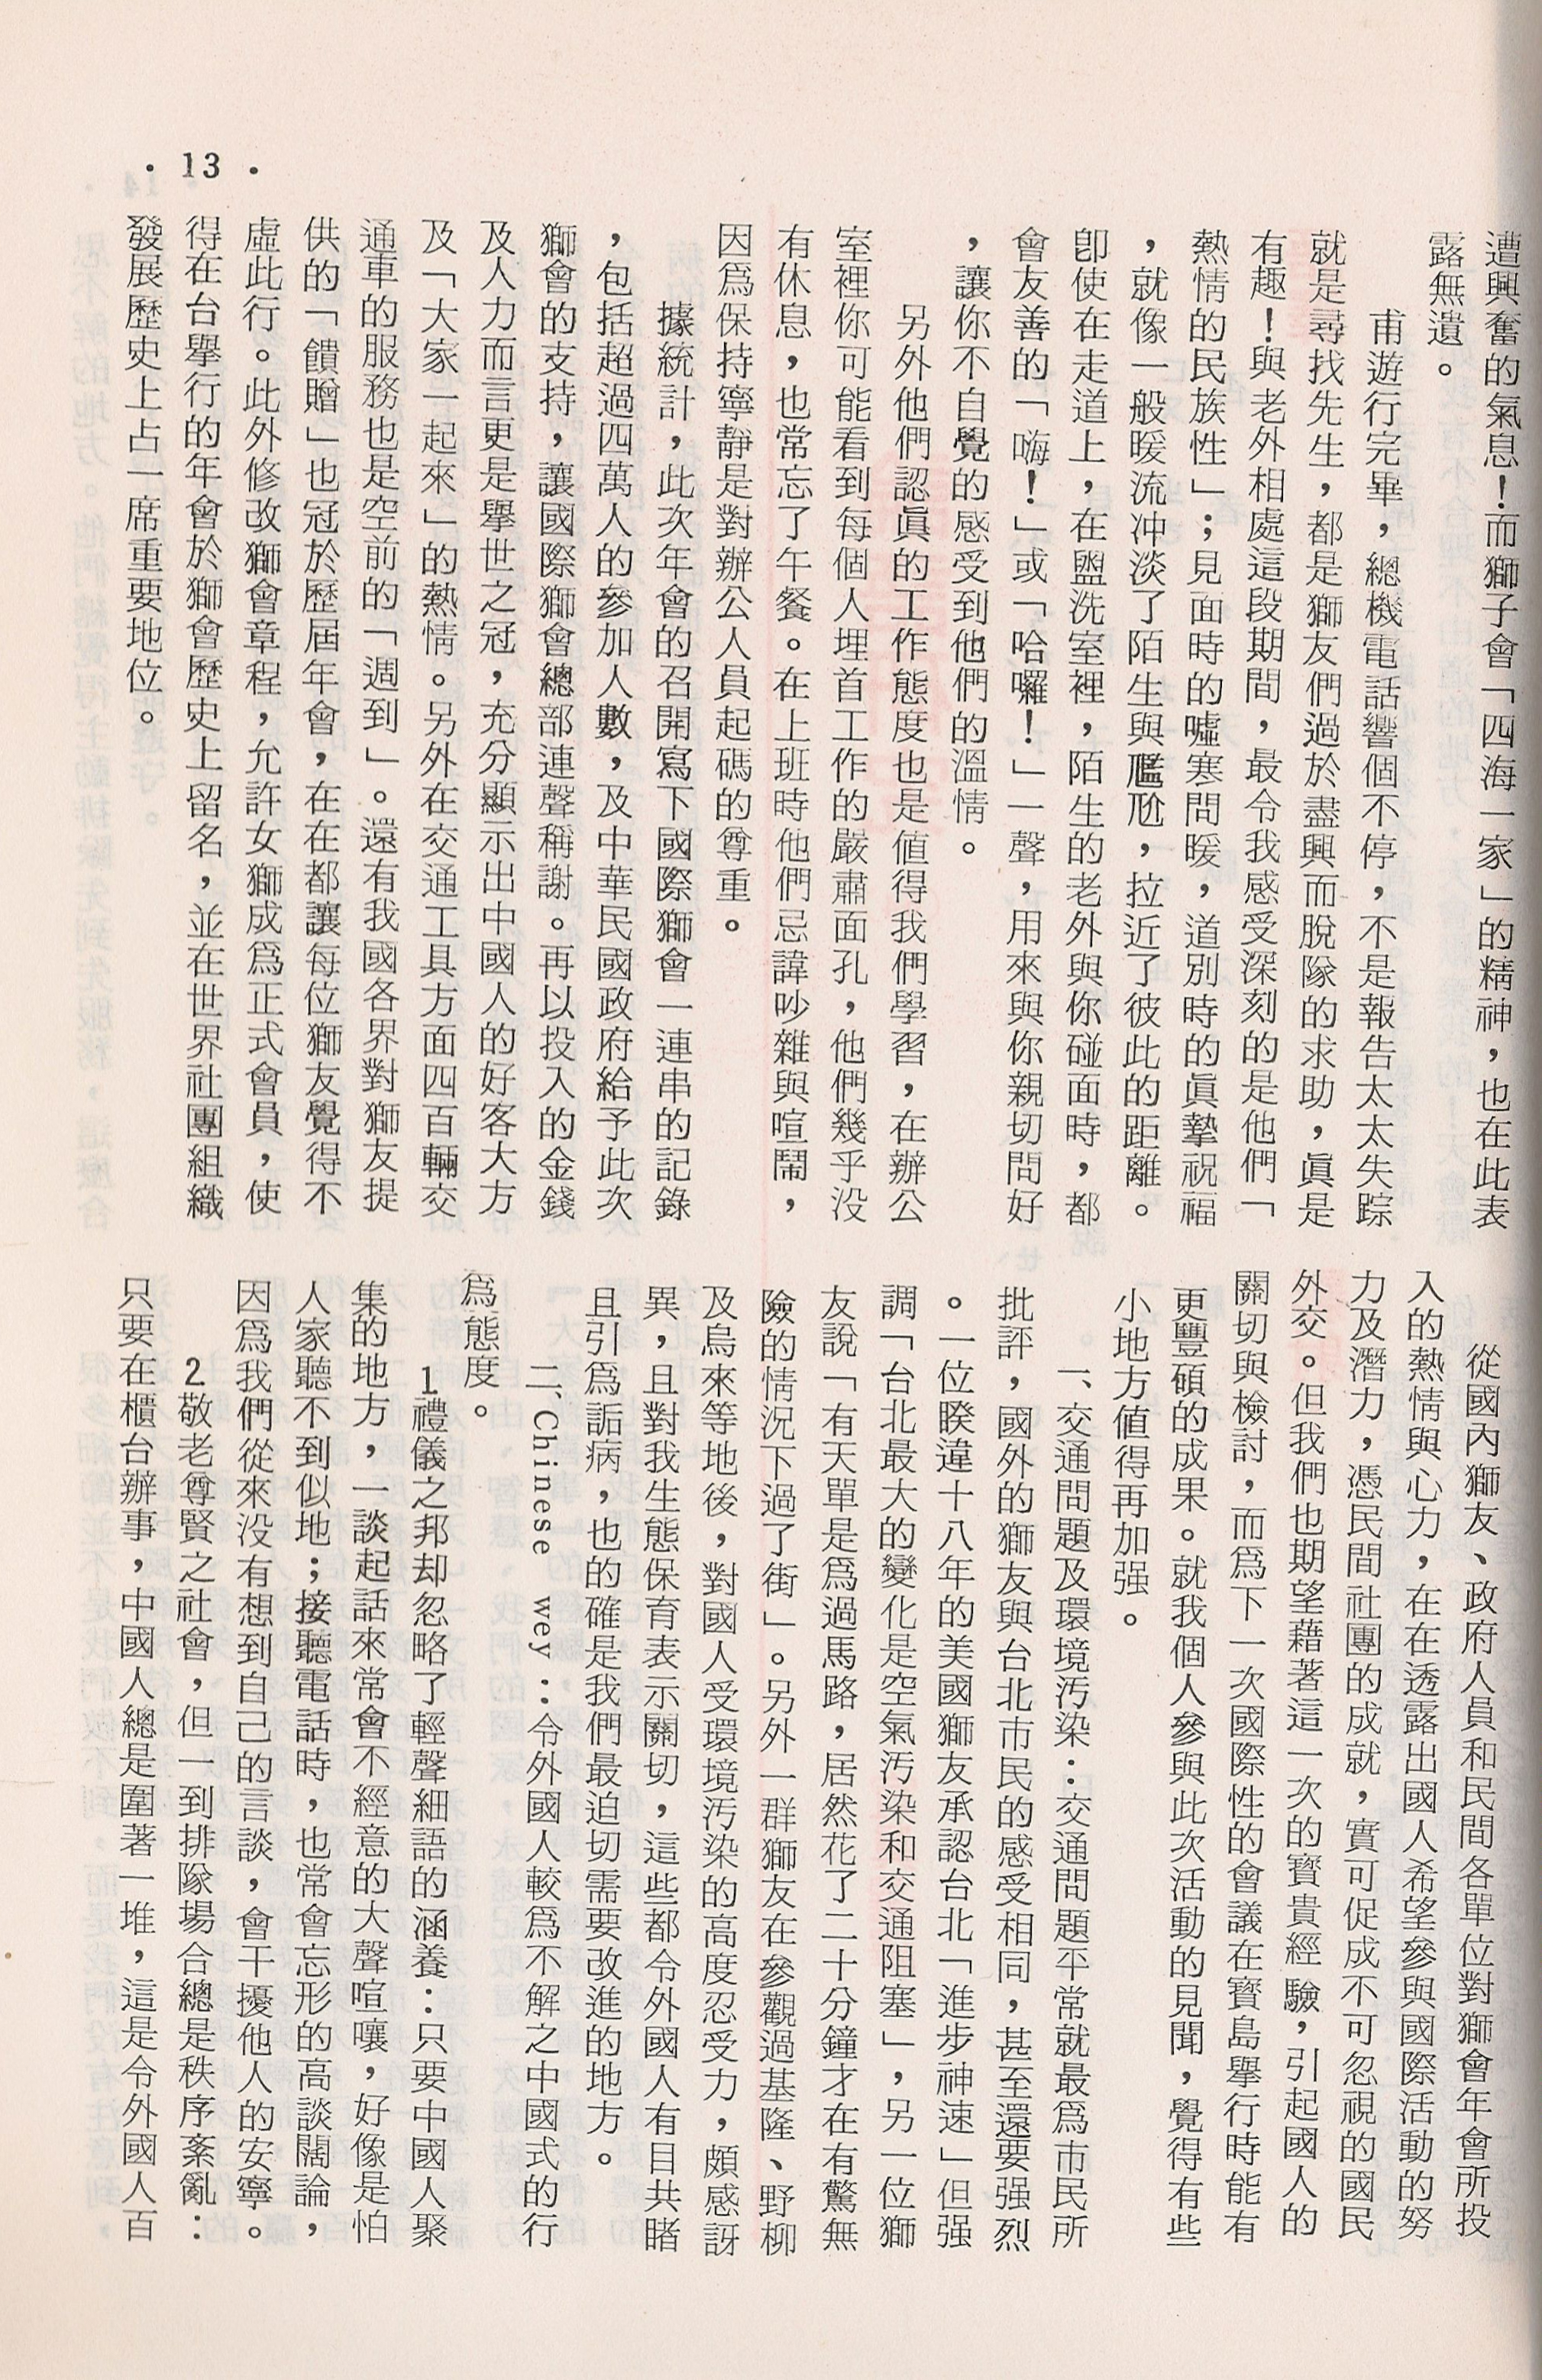 遭興奮的氣息！而獅子會「四海一家」的精神，也在此表
露無遺。
甫遊行完畢，總機電話響個不停，不是報告太太失踪
就是尋找先生，都是獅友們過於盡興而脫隊的求助，眞是
有趣！與老外相處這段期間，最令我感受深刻的是他們「
熱情的民族性」；見面時的噓寒問暖，道別時的眞摯祝福
，就像一般暖流冲淡了陌生與尷尬，拉近了彼此的距離。
卽使在走道上，在盥洗室裡，陌生的老外與你碰面時，都
會友善的「嗨！」或「哈囉！」一聲，用來與你親切問好
，讓你不自覺的感受到他們的溫情。
另外他們認眞的工作態度也是值得我們學習，在辦公
室裡你可能看到每個人埋首工作的嚴肅面孔，他們幾乎没
有休息，也常忘了午餐。在上班時他們忌諱吵雜與喧鬧，
因爲保持寧靜是對辦公人員起碼的尊重。
據統計，此次年會的召開寫下國際獅會一連串的記錄
，包括超過四萬人的參加人數，及中華民國政府給予此次
獅會的支持，讓國際獅會總部連聲稱謝。再以投入的金錢
及人力而言更是舉世之冠，充分顯示出中國人的好客大方
及「大家一起來」的熱情。另外在交通工具方面四百輛交
通車的服務也是空前的「週到」。還有我國各界對獅友提
供的「饋贈」也冠於歷屆年會，在在都讓每位獅友覺得不
虛此行。此外修改獅會章程，允許女獅成爲正式會員，使
得在台舉行的年會於獅會歷史上留名，並在世界社團組織
發展歷史上占一席重要地位。
從國內獅友、政府人員和民間各單位對獅會年會所投
入的熱情與心力，在在透露出國人希望參與國際活動的努
力及潛力，憑民間社團的成就，實可促成不可忽視的國民
外交。但我們也期望藉著這一次的寶貴經驗，引起國人的
關切與檢討，而爲下一次國際性的會議在寶島舉行時能有
更豐碩的成果。就我個人參與此次活動的見聞，覺得有些
小地方值得再加强。
一、交通問題及環境汚染：交通問題平常就最爲市民所
批評，國外的獅友與台北市民的感受相同，甚至還要强烈
。一位睽違十八年的美國獅友承認台北「進步神速」但强
調「台北最大的變化是空氣汚染和交通阻塞」，另一位獅
友說「有天單是爲過馬路，居然花了二十分鐘才在有驚無
險的情況下過了街」。另外一群獅友在參觀過基隆、野柳
及烏來等地後，對國人受環境汚染的高度忍受力，頗感訝
異，且對我生態保育表示關切，這些都令外國人有目共睹
且引爲詬病，也的確是我們最迫切需要改進的地方。
二、Chinese wey：令外國人較爲不解之中國式的行
爲態度。
1禮儀之邦却忽略了輕聲細語的涵養：只要中國人聚
集的地方，一談起話來常會不經意的大聲喧嚷，好像是怕
人家聽不到似地；接聽電話時，也常會忘形的高談闊論，
因爲我們從來没有想到自己的言談，會干擾他人的安寧。
2.敬老尊賢之社會，但一到排隊場合總是秩序紊亂：
只要在櫃台辦事，中國人總是圍著一堆，這是令外國人百
· 13 ·